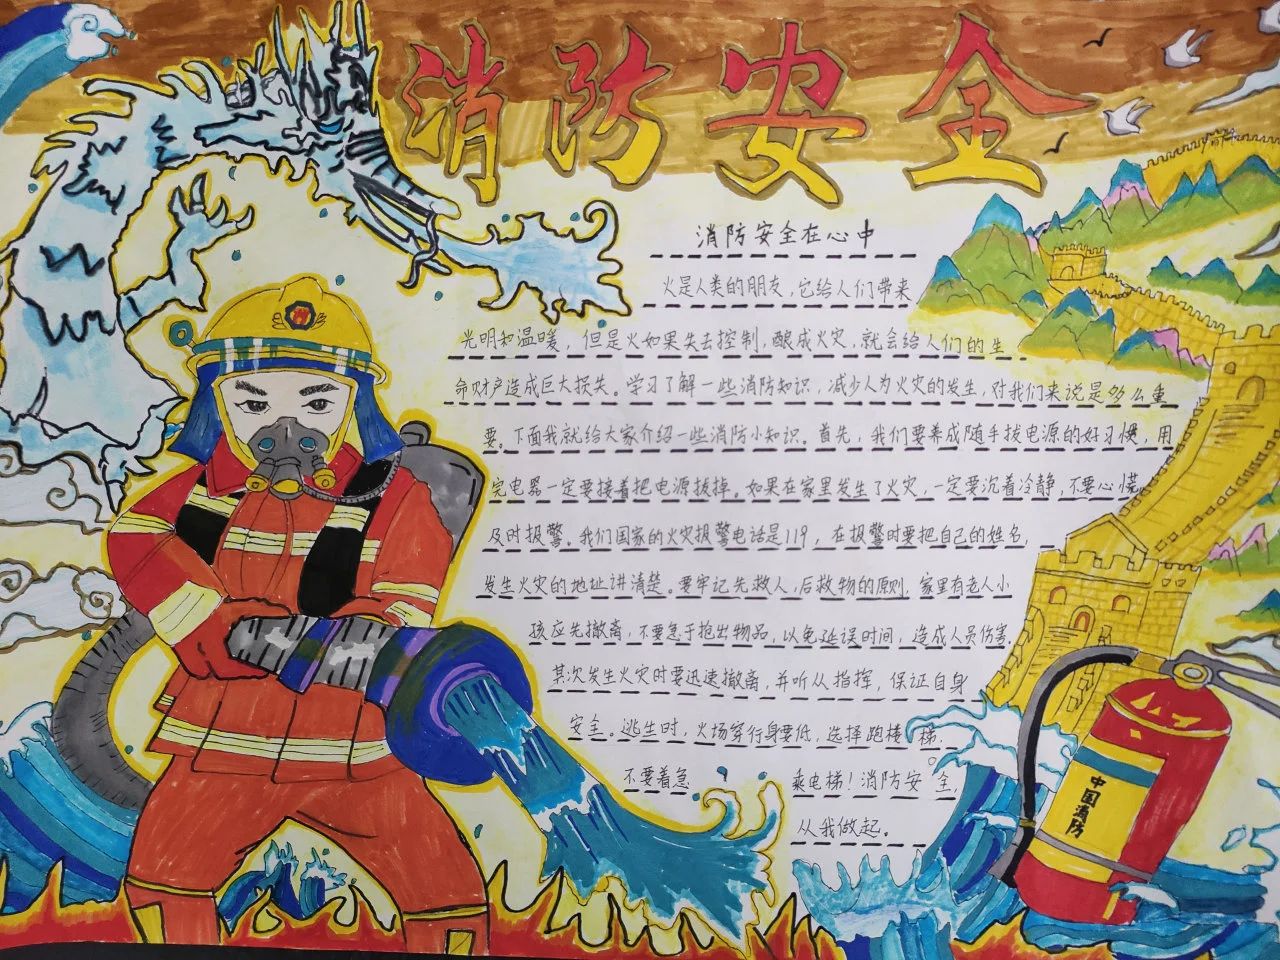 消防安全
消防安全在心中
火是人类的朋友,它给人们带来
光明和温暖,但是火如果失去控制,酿成火灾,就会给人们的生
命财产造成巨大损失。学习了解一些消防知识,减少人为火灾的发生,对我们来说是多么重
要。下面我就给大家介绍一些消防小知识。首先,我们要养成随手拔电源的好习惯,用
完电器一定要接着把电源拔掉。如果在家里发生了火灾,一定要沉着冷静,不要心慌
及时报警。我们国家的火灾报警电话是119,在报警时要把自己的姓名,
发生火灾的地址讲清楚。要牢记先救人,后救物的原则,家里有老人小
孩应先撤离,不要急于抢出物品,以免延误时间,造成人员伤害。
其次发生火灾时要迅速撤离,并听从指挥,保证自身
安全。逃生时,火场穿行身要低,选择跑楼梯,
不要着急 乘电梯!消防安全,
从我做起。
中国消防